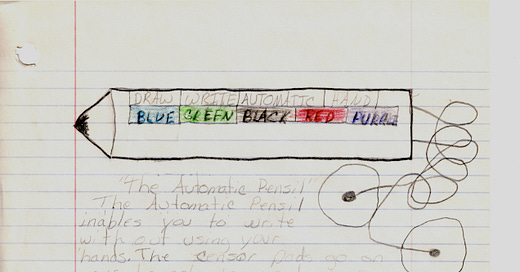 DRAW WRITE AUTOMATIC HAND
BLUE GREEN BLACK RED PURPL
"The Automatic Pensil"
The Automatic Pensil
inables you to write
with out using your
hands. The censor pads go on